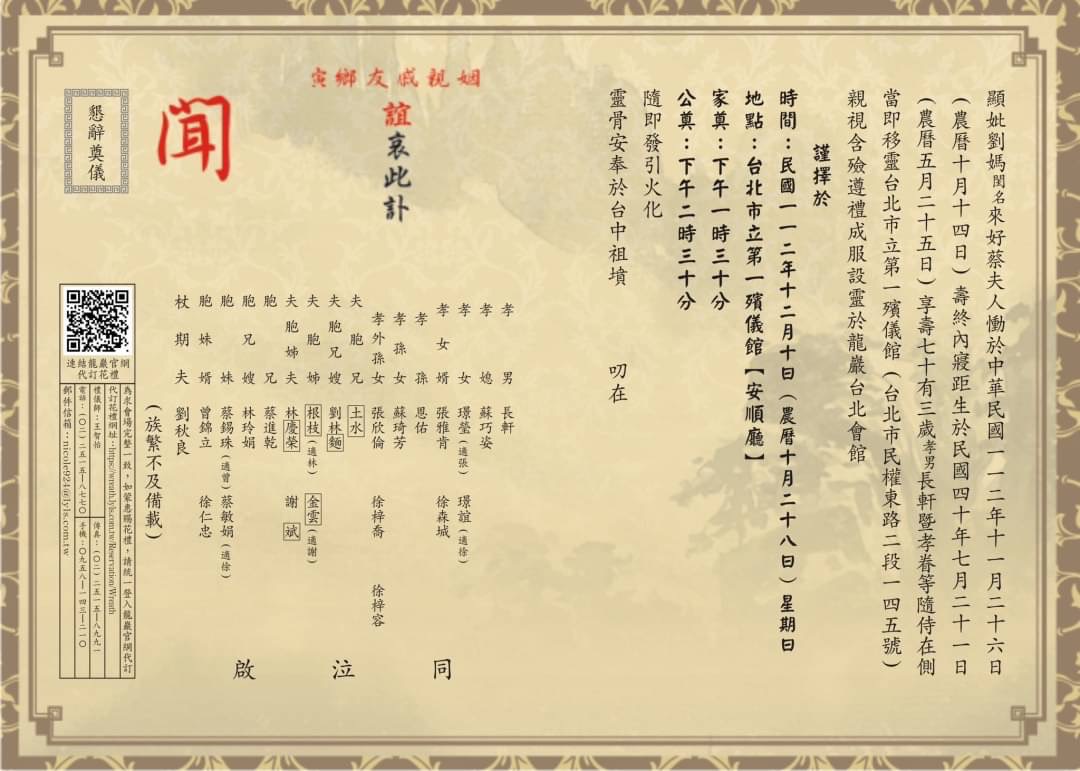 顯妣劉媽閨名來好蔡夫人慟於中華民國一一二年十一月二十六日
(農曆十月十四日)壽終內寢距生於民國四十年七月二十一日
(農曆五月二十五日)享壽七十有三歲孝男長軒暨孝眷等隨侍在側
當即移靈台北市立第一殯儀館(台北市民權東路二段一四五號)
親視含殮遵禮成服設靈於龍巖台北會館
謹擇於
時間:民國一一二年十二月十日(農曆十月二十八日)星期日
地點:台北市立第一殯儀館【安順廳】
家奠:下午一時三十分
公奠:下午二時三十分
隨即發引火化
靈骨安奉於台中祖墳 叨在
姻親戚友鄉寅
誼哀此訃
聞
懇辭奠儀
孝男 長軒
孝媳 蘇巧姿
孝女 璟瑩(適張) 璟誼(適徐)
孝女婿 張雅肯 徐森城
孝孫 恩佑
孝孫女 蘇琦芳
孝外孫女 張欣倫 徐梓喬 徐梓容
夫胞兄 土水
夫胞兄嫂 劉林麵
夫胞姊 根枝(適林) 金雲(適謝)
夫胞姊夫 林慶榮 謝斌
胞兄 蔡進乾
胞兄嫂 林玲娟
胞妹 蔡錫珠(適曾) 蔡敏娟(適徐)
胞妹婿 曾錦立 徐仁忠
杖期夫 劉秋良
同泣啟
(族繁不及備載)
連結龍巖官網
代訂花禮
為求會場完整一致,如蒙惠賜花禮,請統一登入龍巖官網代訂
代訂花禮網址:https://wreath.lyls.com.tw/Reservation/Wreath
禮儀師:王智怡 傳真:(〇二)二五一五-八九九一
電話:(〇二)二五一五-八七七〇 手機:〇九五八-一四三-二一〇
郵件信箱:nicole924@lyls.com.tw